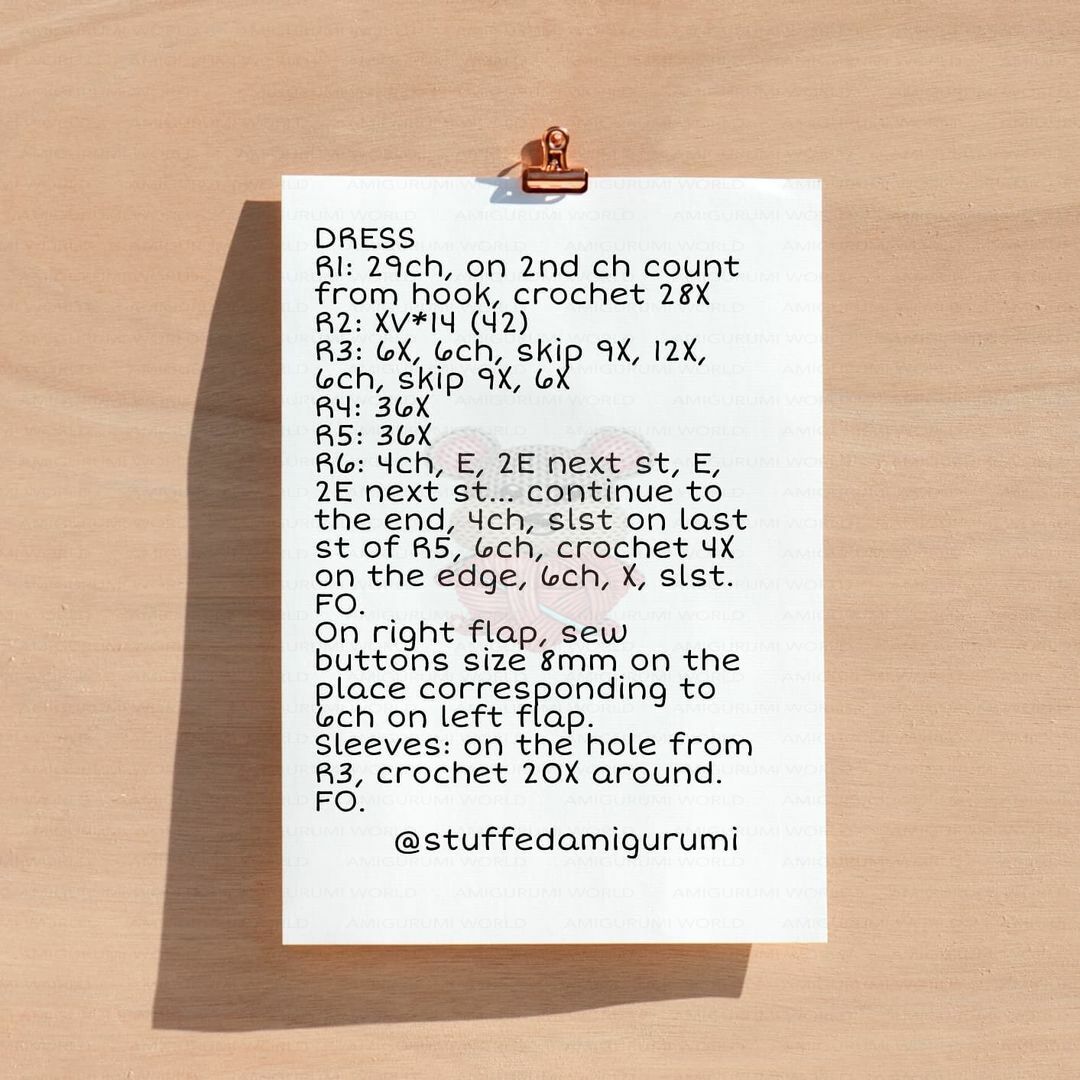 DRESS
R1: 29ch, on 2nd ch count
from hook, crochet 28X
R2: XV*14 (42)
R3: 6X, 6ch, skip 9X, 12X,
6ch, skip 9X, 6X
R4: 36X
R5: 36X
R6: 4ch, E, 2E next st, E,
2E next st... continue to
the end, 4ch, slst on last
st of R5, 6ch, crochet 4X
on the edge, 6ch, X, slst.
FO.
On right flap, sew
buttons size 8mm on the
place corresponding to
6ch on left flap.
Sleeves: on the hole from
R3, crochet 20X around.
FO.
@stuffedamigurumi
AMIGURUMI WORLD